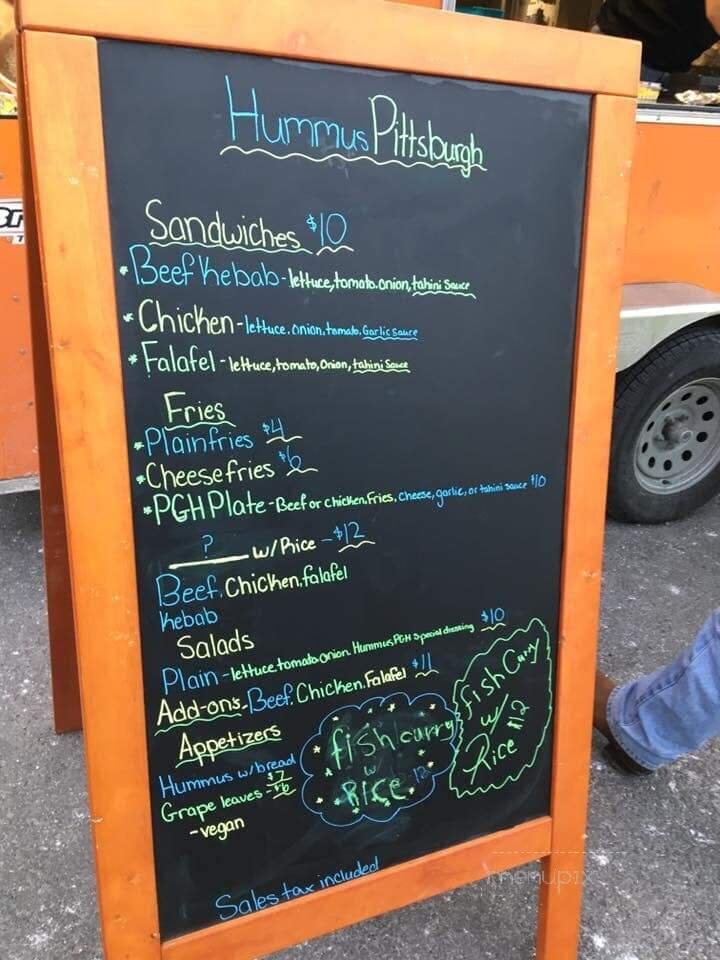 Hummus Pittsburgh
Sandwiches $10
* Beef Kebab - lettuce, tomato, onion, tahini Sauce
* Chicken - lettuce, onion, tomato, Garlic Sauce
* Falafel - lettuce, tomato, Onion, tahini Sauce
Fries
* Plain fries $4
* Cheese fries $6
* PGH Plate - Beef or chicken, Fries, cheese, garlic, or tahini sauce $10
? w/ Rice - $12
Beef, Chicken, falafel
Kebab
Salads
Plain - lettuce, tomato, onion, Hummus, PGH Special dressing $10
Add-ons - Beef, Chicken, Falafel $11
Appetizers
Hummus w/ bread $7
Grape leaves - $6
- vegan
fish curry
w
RICE 12
fish Curry
w/
Rice $12
Sales tax included
menupix